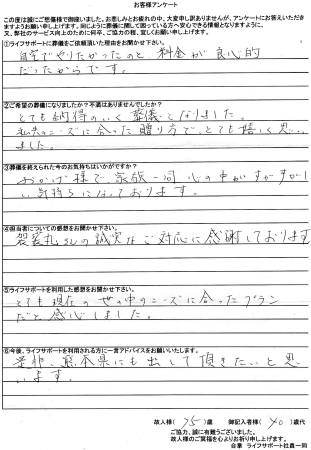 お客様アンケート
この度は誠にご愁傷様で御座いました。お悲しみとお疲れの中、大変申し訳ありませんが、アンケートにお答えいただき
ますようお願い申し上げます。同じように葬儀に関して困っている方へ安心できる情報となりますように、
又、弊社のサービス向上のために何卒、ご協力の程、宜しくお願い申し上げます。
①ライフサポートに葬儀をご依頼頂いた理由をお聞かせ下さい。
自宅でやりたかったのと 料金が良心的
だったからです。
②ご希望の葬儀になりましたか?不満はありませんでしたか?
とても納得のいく葬儀となりました。
私共のニーズに合った贈り方で、とても嬉しく思い
ました。
③葬儀を終えられた今のお気持ちはいかがですか?
おかげ様で、家族一同 心の中がすがすがし
い気持ちになっております。
④担当者についての感想をお聞かせ下さい。
さんの誠実なご対応に感謝しております
⑤ライフサポートを利用した感想をお聞かせ下さい。
とても現在の世の中のニーズに合ったプラン
だと感心しました。
⑥今後、ライフサポートを利用される方に一言アドバイスをお願いいたします。
是非、熊本県にも出して頂きたいと思
います。
故人様( 75 )歳 御記入者様( 40 )歳代
ご協力、誠に有難うございました。
故人様のご冥福を心よりお祈り申し上げます。
合掌 ライフサポート社員一同